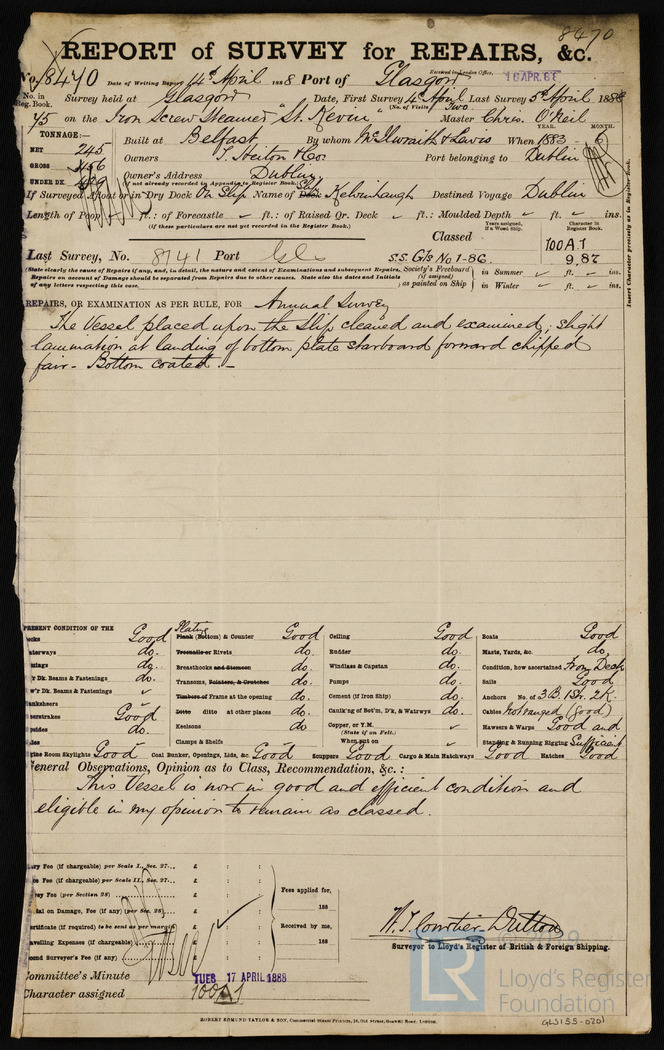 8470
REPORT of SURVEY for REPAIRS, &c.
No. 8470 Date of Writing Report 14th April 1888 Port of Glasgow Received in London Office, 16 APR. 88
No. in Reg. Book. Survey held at Glasgow Date, First Survey 4th April Last Survey 5th April 1888
(No. of Visits Two)
75 on the Iron Screw Steamer "St. Kevin" Master Chris. O'Neil
TONNAGE:—
YEAR. MONTH.
NET 245 Built at Belfast By whom McIlwraith & Lewis When 1883 - 6
GROSS 456 Owners T. Heiton & Co. Port belonging to Dublin
UNDER DK. Owner's Address Dublin
(if not already recorded in Appendix to Register Book.)
If Surveyed Afloat or in Dry Dock On Slip Name of Dock Slip Kelvinhaugh Destined Voyage Dublin
Length of Poop ft.: of Forecastle ft.: of Raised Qr. Deck ft.: Moulded Depth ft. ins.
(If these particulars are not yet recorded in the Register Book.)
Classed
Years assigned, if a Wood Ship.
Character in Register Book.
Insert Character precisely as in Register Book.
100 A.1
Last Survey, No. 8141 Port Gls S.S. Gls No 1-86. 9,87
(State clearly the cause of Repairs if any, and, in detail, the nature and extent of Examinations and subsequent Repairs. Repairs on account of Damage should be separated from Repairs due to other causes. State also the dates and Initials of any letters respecting this case.
Society's Freeboard (if assigned) as painted on Ship
in Summer ft. ins.
in Winter ft. ins.
REPAIRS, OR EXAMINATION AS PER RULE, FOR Annual Survey
The Vessel placed upon the slip cleaned and examined; slight
lamination at landing of bottom plate starboard forward chipped
fair - Bottom coated. -
PRESENT CONDITION OF THE
Decks Good Plating Plank (Bottom) & Counter Good Ceiling Good Boats Good
Waterways do. Treenails or Rivets do. Rudder do. Masts, Yards, &c. do.
do. Breasthooks and Stemson do. Windlass & Capstan do. Condition, how ascertained From Deck
Dk. Beams & Fastenings do. Transoms, Pointers, & Crutches do. Pumps do. Sails Good
Dk. Beams & Fastenings Timbers of Frame at the opening do. Cement (if Iron Ship) do. Anchors No. of 3 B. 1 St. 2 K.
Good Ditto ditto at other places do. Caulk'ng of Bot'm, D'k, & Watrwys do. Cables Not ranged (Good)
do. Keelsons do. Copper, or Y.M. Hawsers & Warps Good and
(State if on Felt.)
Clamps & Shelfs When put on Standing & Running Rigging Sufficient
Engine Room Skylights Good Coal Bunker, Openings, Lids, &c. Good Scuppers Good Cargo & Main Hatchways Good Hatches Good
General Observations, Opinion as to Class, Recommendation, &c.:
This Vessel is now in good and efficient condition and
eligible in my opinion to remain as classed.
Fee (if chargeable) per Scale I., Sec. 27... £ : :
Fee (if chargeable) per Scale II., Sec. 27... £ : :
Fee (per Section 28) £ : : Fees applied for,
on Damage, Fee (if any) (per Sec. 28) £ : : 188
Certificate (if required) to be sent as per margin £ : : Received by me,
Travelling Expenses (if chargeable) £ : : 188
Second Surveyor's Fee (if any) £ : :
W. J. Courtier-Dutton
Surveyor to Lloyd's Register of British & Foreign Shipping.
Committee's Minute TUES 17 APRIL 1888
Character assigned 100A1
© 2019
LR Lloyd's Register
Foundation
ROBERT EDMUND TAYLOR & SON, Commercial Steam Printers, 19, Old Street, Goswell Road, London.
GLS155-0201